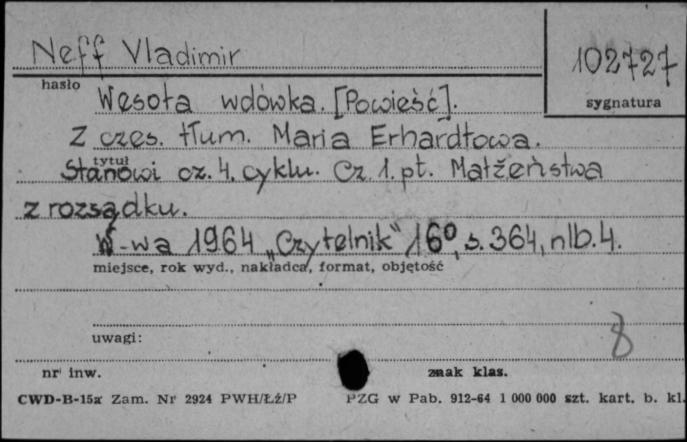 Neff Vladimir
102727
hasło
sygnatura
Wesoła wdówka. [Powieść].
Z czes. tłum. Maria Erhardtowa.
tytuł
Stanowi cz. 4. cyklu. Cz. 1. pt. Małżeństwa
z rozsądku.
W-wa 1964 „Czytelnik" 16°, s. 364, nlb. 4.
miejsce, rok wyd., nakładca, format, objętość
uwagi:
8
nr inw.
znak klas.
CWD-B-15a Zam. Nr 2924 PWH/Łź/P
PZG w Pab. 912-64 1 000 000 szt. kart. b. kl.